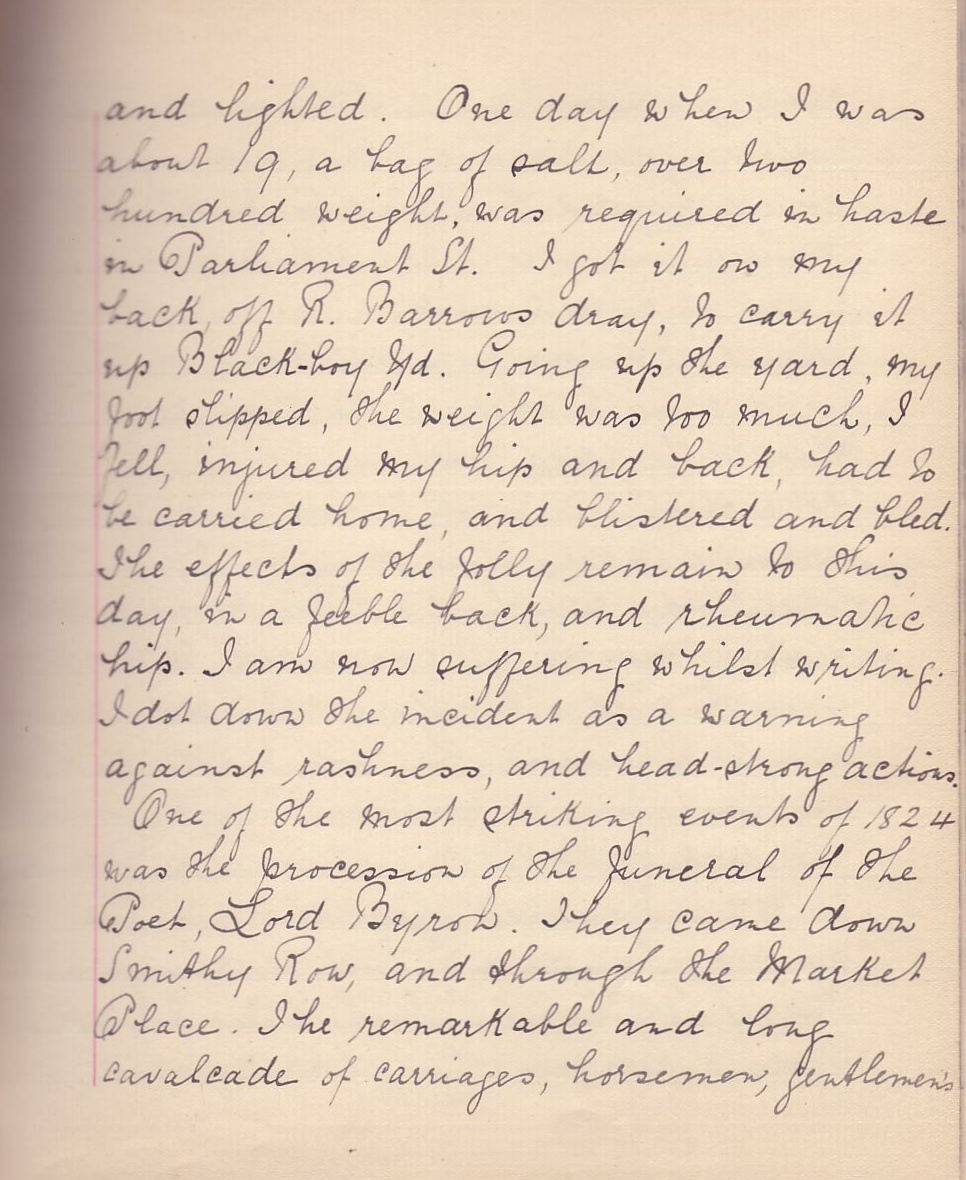 and lighted. One day when I was
about 19, a bag of salt, over two
hundred weight, was required in haste
in Parliament St. I got it on my
back, off R. Barrows dray, to carry it
up Black-boy Yd. Going up the yard, my
foot slipped, the weight was too much, I
fell, injured my hip and back, had to
be carried home, and blistered and bled.
The effects of the folly remain to this
day, in a feeble back, and rheumatic
hip. I am now suffering whilst writing.
I dot down the incident as a warning
against rashness, and head-strong actions.
One of the most striking events of 1824
was the procession of the funeral of the
Poet, Lord Byron. They came down
Smithy Row, and through the Market
Place. The remarkable and long
cavalcade of carriages, horsemen, gentlemen's